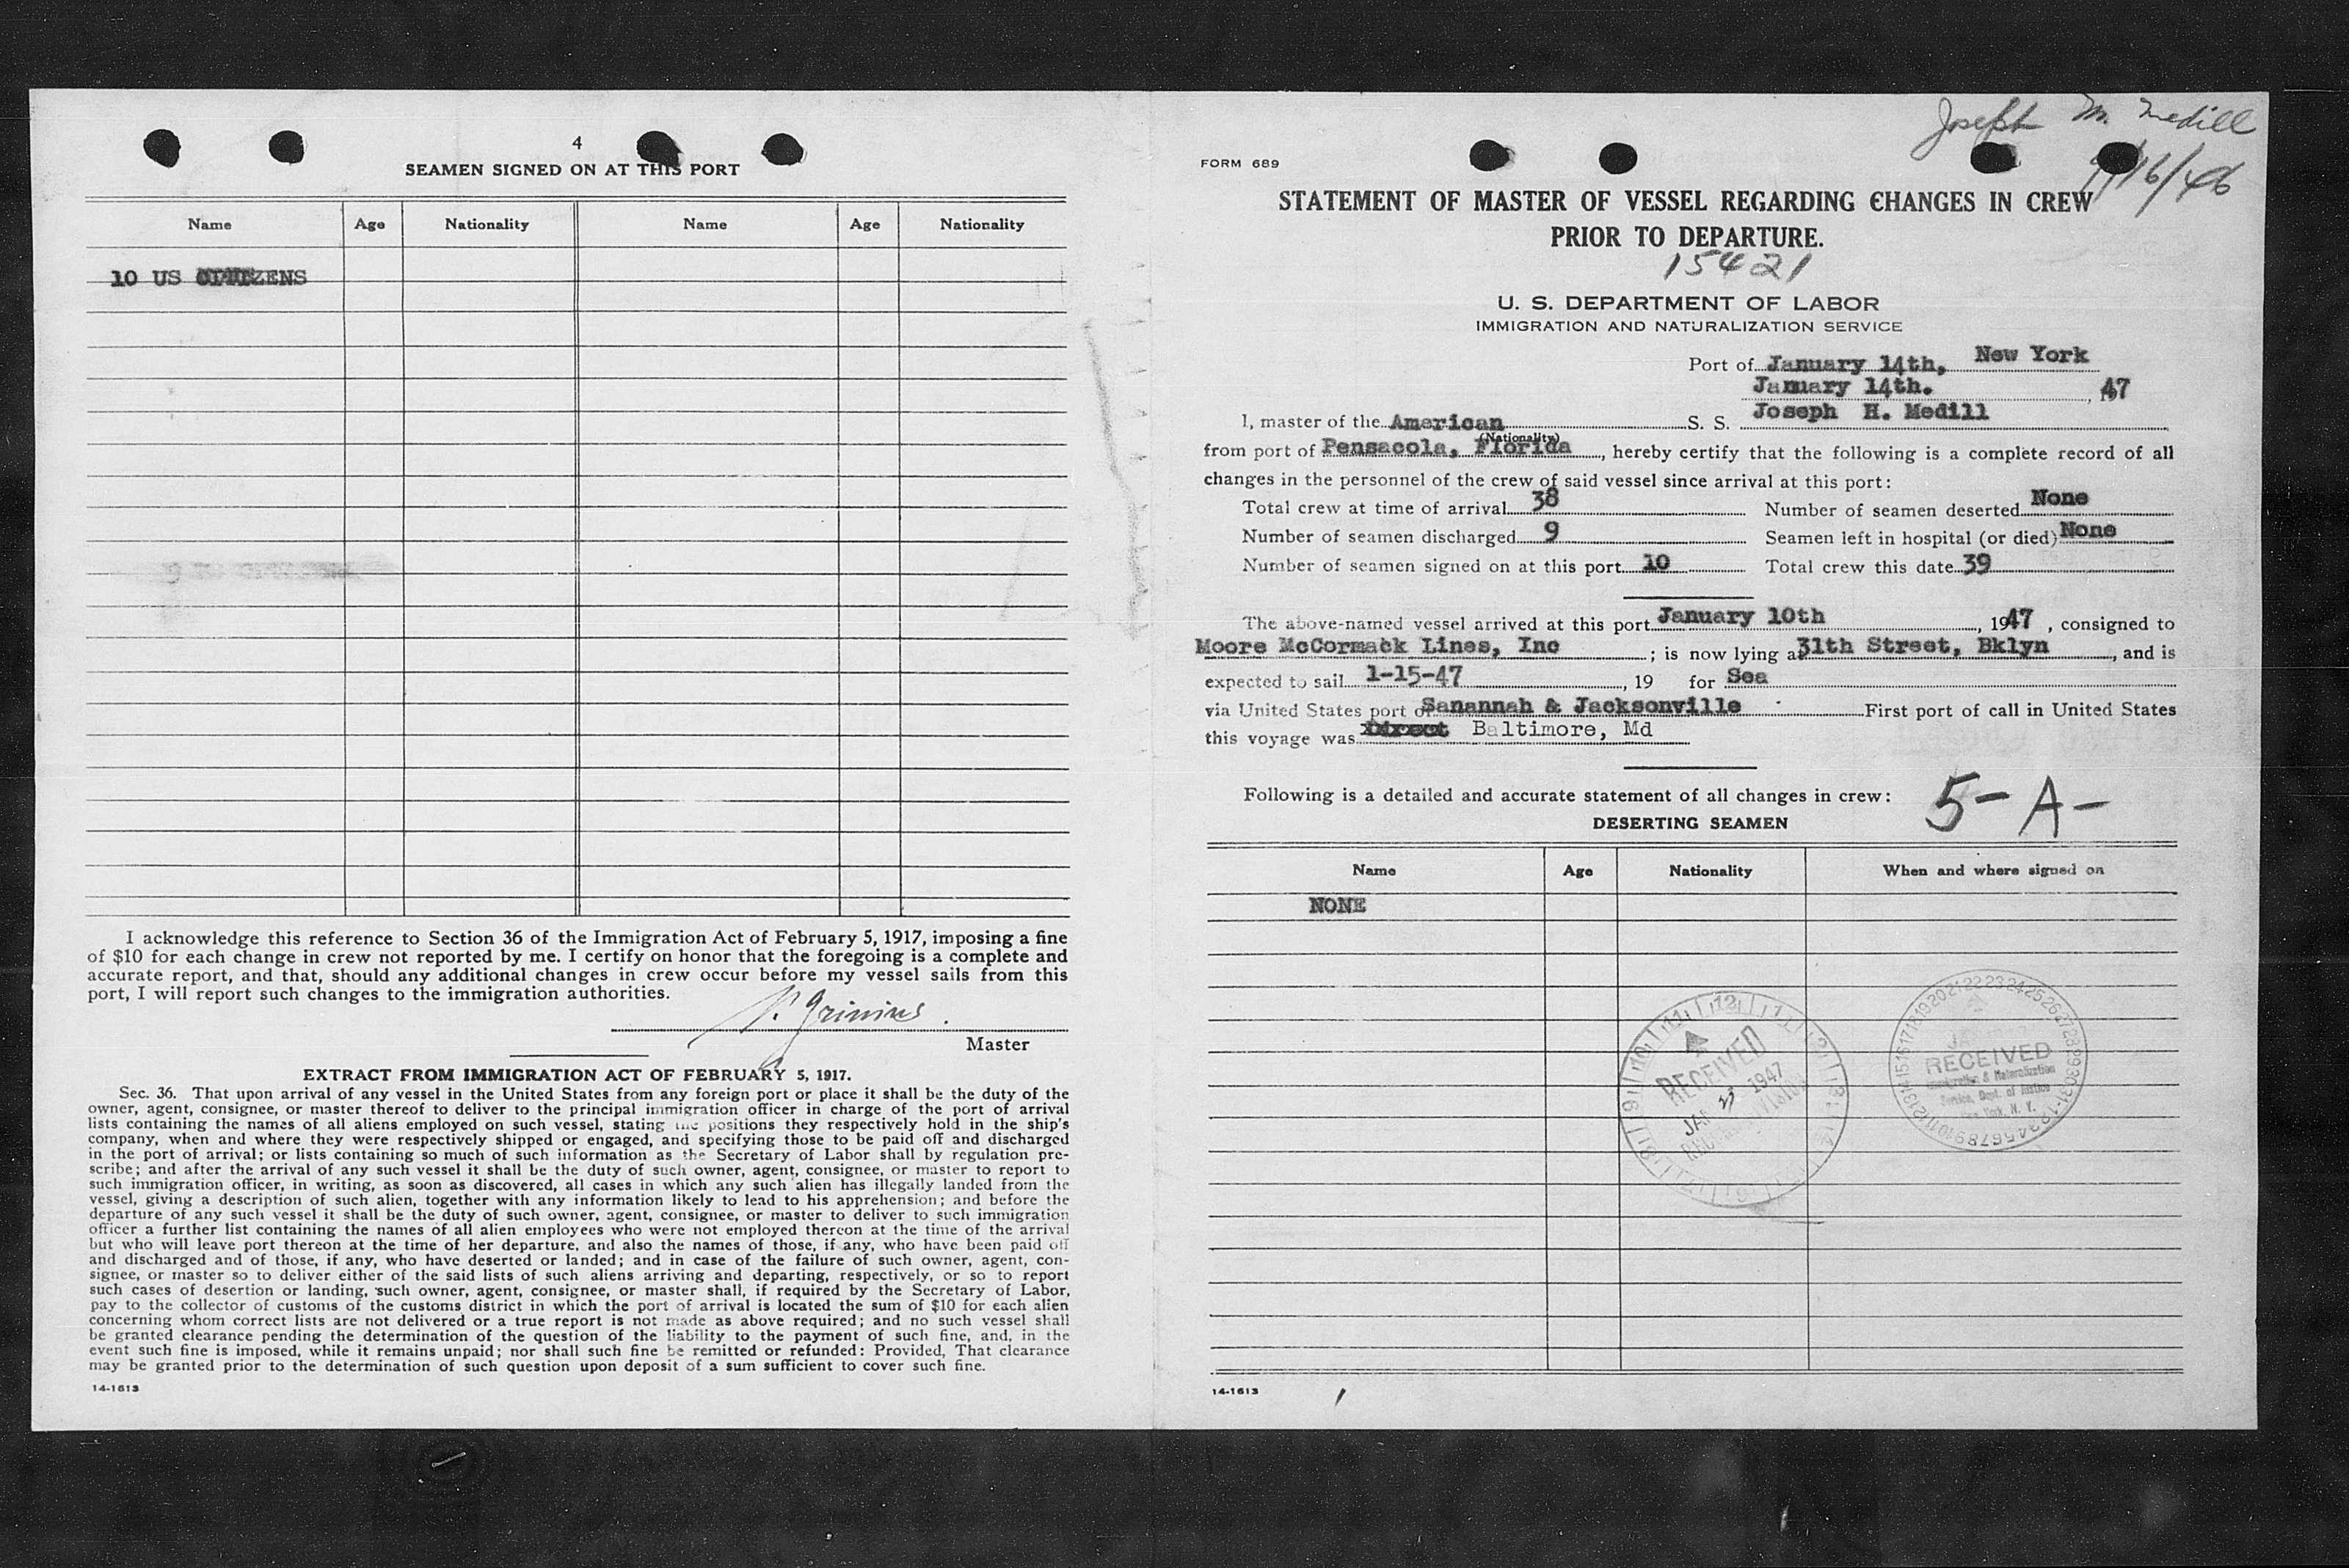 4
SEAMEN SIGNED ON AT THIS PORT
Name Age Nationality Name Age Nationality
10 US CITIZENS
I acknowledge this reference to Section 36 of the Immigration Act of February 5, 1917, imposing a fine
of $10 for each change in crew not reported by me. I certify on honor that the foregoing is a complete and
accurate report, and that, should any additional changes in crew occur before my vessel sails from this
port, I will report such changes to the immigration authorities.
P. Grinius
Master
EXTRACT FROM IMMIGRATION ACT OF FEBRUARY 5, 1917.
Sec. 36. That upon arrival of any vessel in the United States from any foreign port or place it shall be the duty of the
owner, agent, consignee, or master thereof to deliver to the principal immigration officer in charge of the port of arrival
lists containing the names of all aliens employed on such vessel, stating the positions they respectively hold in the ship's
company, when and where they were respectively shipped or engaged, and specifying those to be paid off and discharged
in the port of arrival; or lists containing so much of such information as the Secretary of Labor shall by regulation pre-
scribe; and after the arrival of any such vessel it shall be the duty of such owner, agent, consignee, or master to report to
such immigration officer, in writing, as soon as discovered, all cases in which any such alien has illegally landed from the
vessel, giving a description of such alien, together with any information likely to lead to his apprehension; and before the
departure of any such vessel it shall be the duty of such owner, agent, consignee, or master to deliver to such immigration
officer a further list containing the names of all alien employees who were not employed thereon at the time of the arrival
but who will leave port thereon at the time of her departure, and also the names of those, if any, who have been paid off
and discharged and of those, if any, who have deserted or landed; and in case of the failure of such owner, agent, con-
signee, or master so to deliver either of the said lists of such aliens arriving and departing, respectively, or so to report
such cases of desertion or landing, such owner, agent, consignee, or master shall, if required by the Secretary of Labor,
pay to the collector of customs of the customs district in which the port of arrival is located the sum of $10 for each alien
concerning whom correct lists are not delivered or a true report is not made as above required; and no such vessel shall
be granted clearance pending the determination of the question of the liability to the payment of such fine, and, in the
event such fine is imposed, while it remains unpaid; nor shall such fine be remitted or refunded: Provided, That clearance
may be granted prior to the determination of such question upon deposit of a sum sufficient to cover such fine.
14-1613
Joseph M. Medill
/16/46
FORM 689
STATEMENT OF MASTER OF VESSEL REGARDING CHANGES IN CREW
PRIOR TO DEPARTURE.
15421
U. S. DEPARTMENT OF LABOR
IMMIGRATION AND NATURALIZATION SERVICE
Port of January 14th, New York
January 14th. , 47
I, master of the American S. S. Joseph H. Medill
(Nationality)
from port of Pensacola, Florida, hereby certify that the following is a complete record of all
changes in the personnel of the crew of said vessel since arrival at this port:
Total crew at time of arrival 38 Number of seamen deserted None
Number of seamen discharged 9 Seamen left in hospital (or died) None
Number of seamen signed on at this port 10 Total crew this date 39
The above-named vessel arrived at this port January 10th , 1947 , consigned to
Moore McCormack Lines, Inc ; is now lying a 31th Street, Bklyn , and is
expected to sail 1-15-47 , 19 for Sea
via United States port of Sanannah & Jacksonville First port of call in United States
this voyage was Direct Baltimore, Md
Following is a detailed and accurate statement of all changes in crew:
5-A-
DESERTING SEAMEN
Name Age Nationality When and where signed on
NONE
RECEIVED
JAN 1947
RECEIVED
Immigration & Naturalization
Service, Dept. of Justice
New York, N. Y.
14-1613